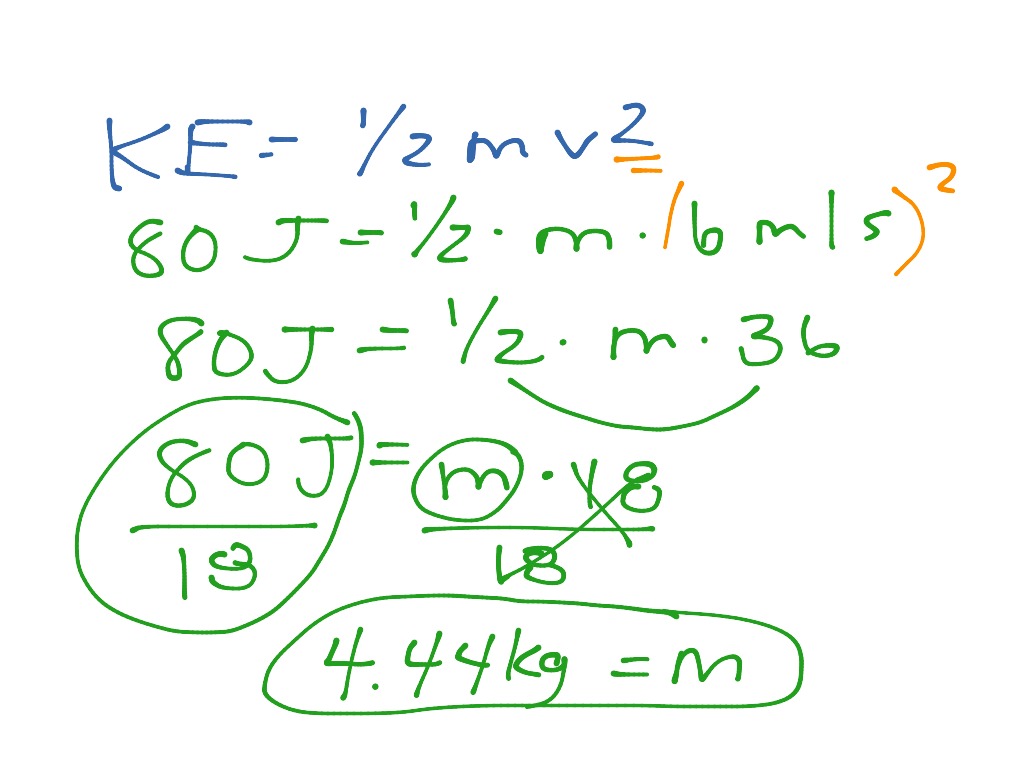 KE = 1/2 m v²
80 J = 1/2 · m · (6 m/s)²
80 J = 1/2 · m · 36
80 J = m · 18
18 18
4.44 kg = m